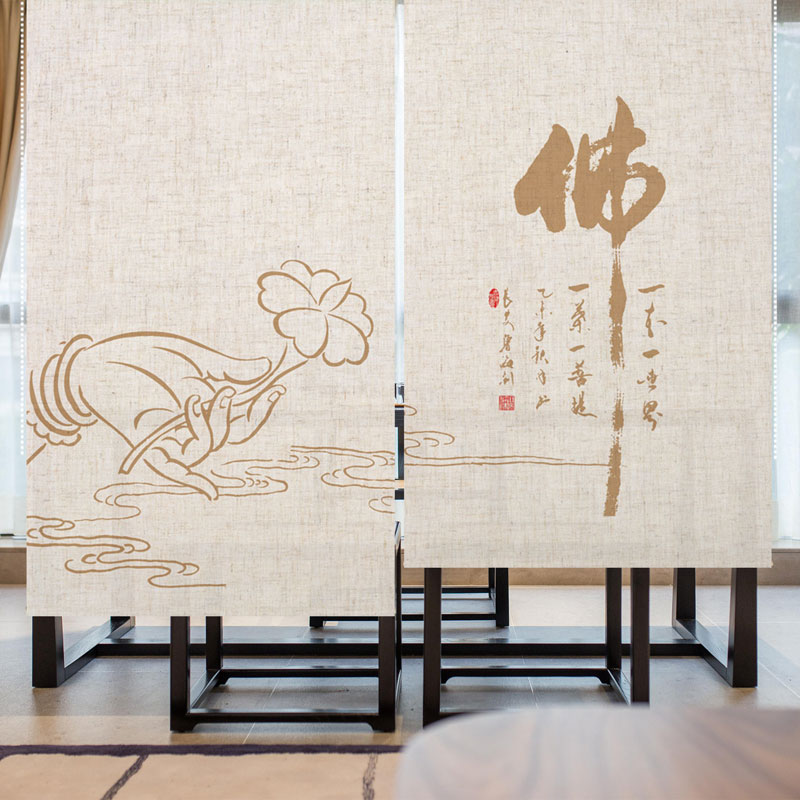 佛
一花一世界
一葉一菩提
乙未年秋月